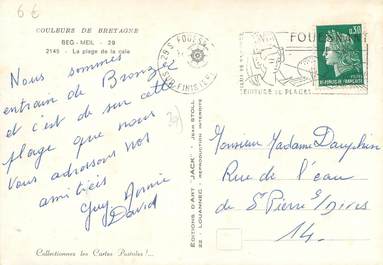 6€
COULEURS DE BRETAGNE
BEG-MEIL - 29
2145 - La plage de la cale
Nous sommes
entrain de Bronzer
et c'est de sur cette
plage que nous
Vous adressons nos
amitiés
Guy Annie
David
Collectionnez les Cartes Postales !...
EDITIONS D'ART "JACK"
22 - LOUANNEC - REPRODUCTION INTERDITE
JEAN STOLL
29 S FOUESN
SUD-FINISTERE
FOUE
CEINTURE de PLAGES
0,30
REPUBLIQUE FRANÇAISE
Monsieur Madame Dauphin
Rue de l'eau
de St Pierre s/Dives
14.